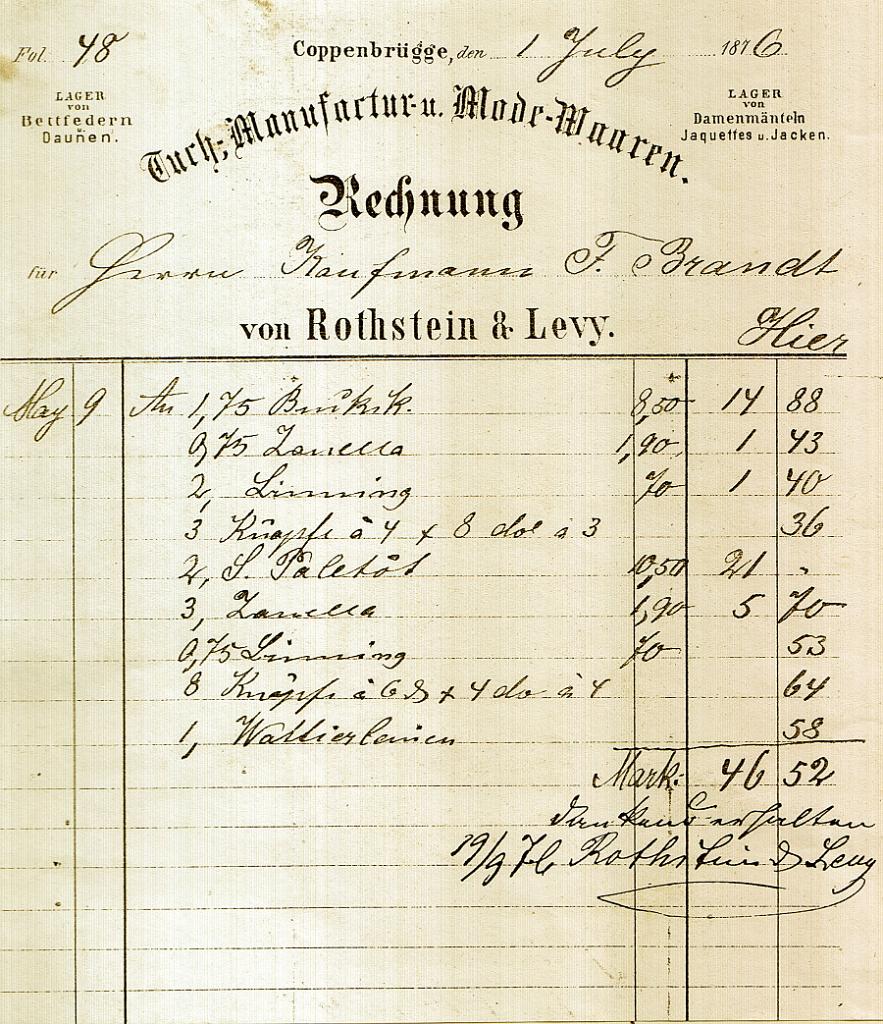 Fol. 48
Coppenbrügge, den 1 July 1876
LAGER
von
Bettfedern
Daunen.
LAGER
von
Damenmänteln
Jaquettes u. Jacken.
Tuch-, Manufactur- u. Mode-Waaren.
Rechnung
für Herrn Kaufmann F. Brandt
von Rothstein & Levy. Hier
May 9 An 1,75 Bucksk. 8,50 14 88
0,75 Zanella 1,90 1 43
2, Linning 70 1 40
3 Knöpfe à 4 + 8 do à 3 36
2, S. Paletôt 10,50 21 "
3, Zanella 1,90 5 70
0,75 Linning 70 53
8 Knöpfe à 6 ₰ + 4 do à 4 64
1, Wattierleinen 58
Mark: 46 52
dankend erhalten
19/9 76 Rothstein & Levy